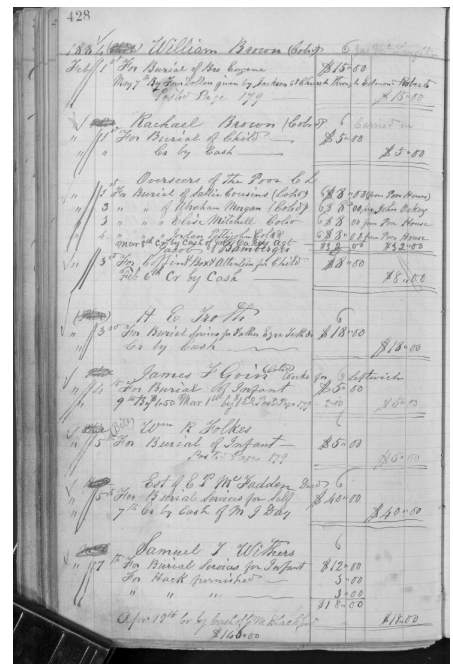 428
1884 William Brown (Cold) 6
Feb 1st For Burial of Mrs Eugene $15.00
May 7th By Four Dollars given by Jackson St Church through Edmond Roberts
Posted Page 179 $15.00
Rachael Brown (Cold) 6 Carried on
" 1st For Burial of Child $5.00
" " Cr by Cash $5.00
Overseers of the Poor C L
" 1st For Burial of Sallie Cousins (Cold) 6 $8.00 from Poor House
" 3 " " of Abraham Morgan (Cold) 6 $8.00 per John Oakey
" 3 " " of Eliza Mitchell Cold 6 $8.00 from Poor House
" 4 " " " Jordan Cold 6 $8.00 Poor House
Mar 9th Cr by Cash of $32.00 $32.00
" 3rd For Coffin Box & Attention for Child $8.00
Feb 6th Cr by Cash $8.00
H E Troth 6
" 3rd For Burial Servics for $18.00
Cr by Cash $18.00
James F Goin (Cold) Works for
" 4th For Burial of Infant $5.00
9th By 2.50 Mar 1st by Post Page 179 2.50 $5.00
Wm R Folkes
" 5th For Burial of Infant $5.00
Posted Page 179 $5.00
Est of E P McFadden Decd 6
" 5th For Burial Services for Self $40.00
7th Cr by Cash of M J Day $40.00
Samuel T Withers 6
" 7th For Burial Services for Infant $12.00
For Hack furnished 3.00
" " " 3.00
$18.00
Apr 12th Cr by Cash of $18.00
$146.00